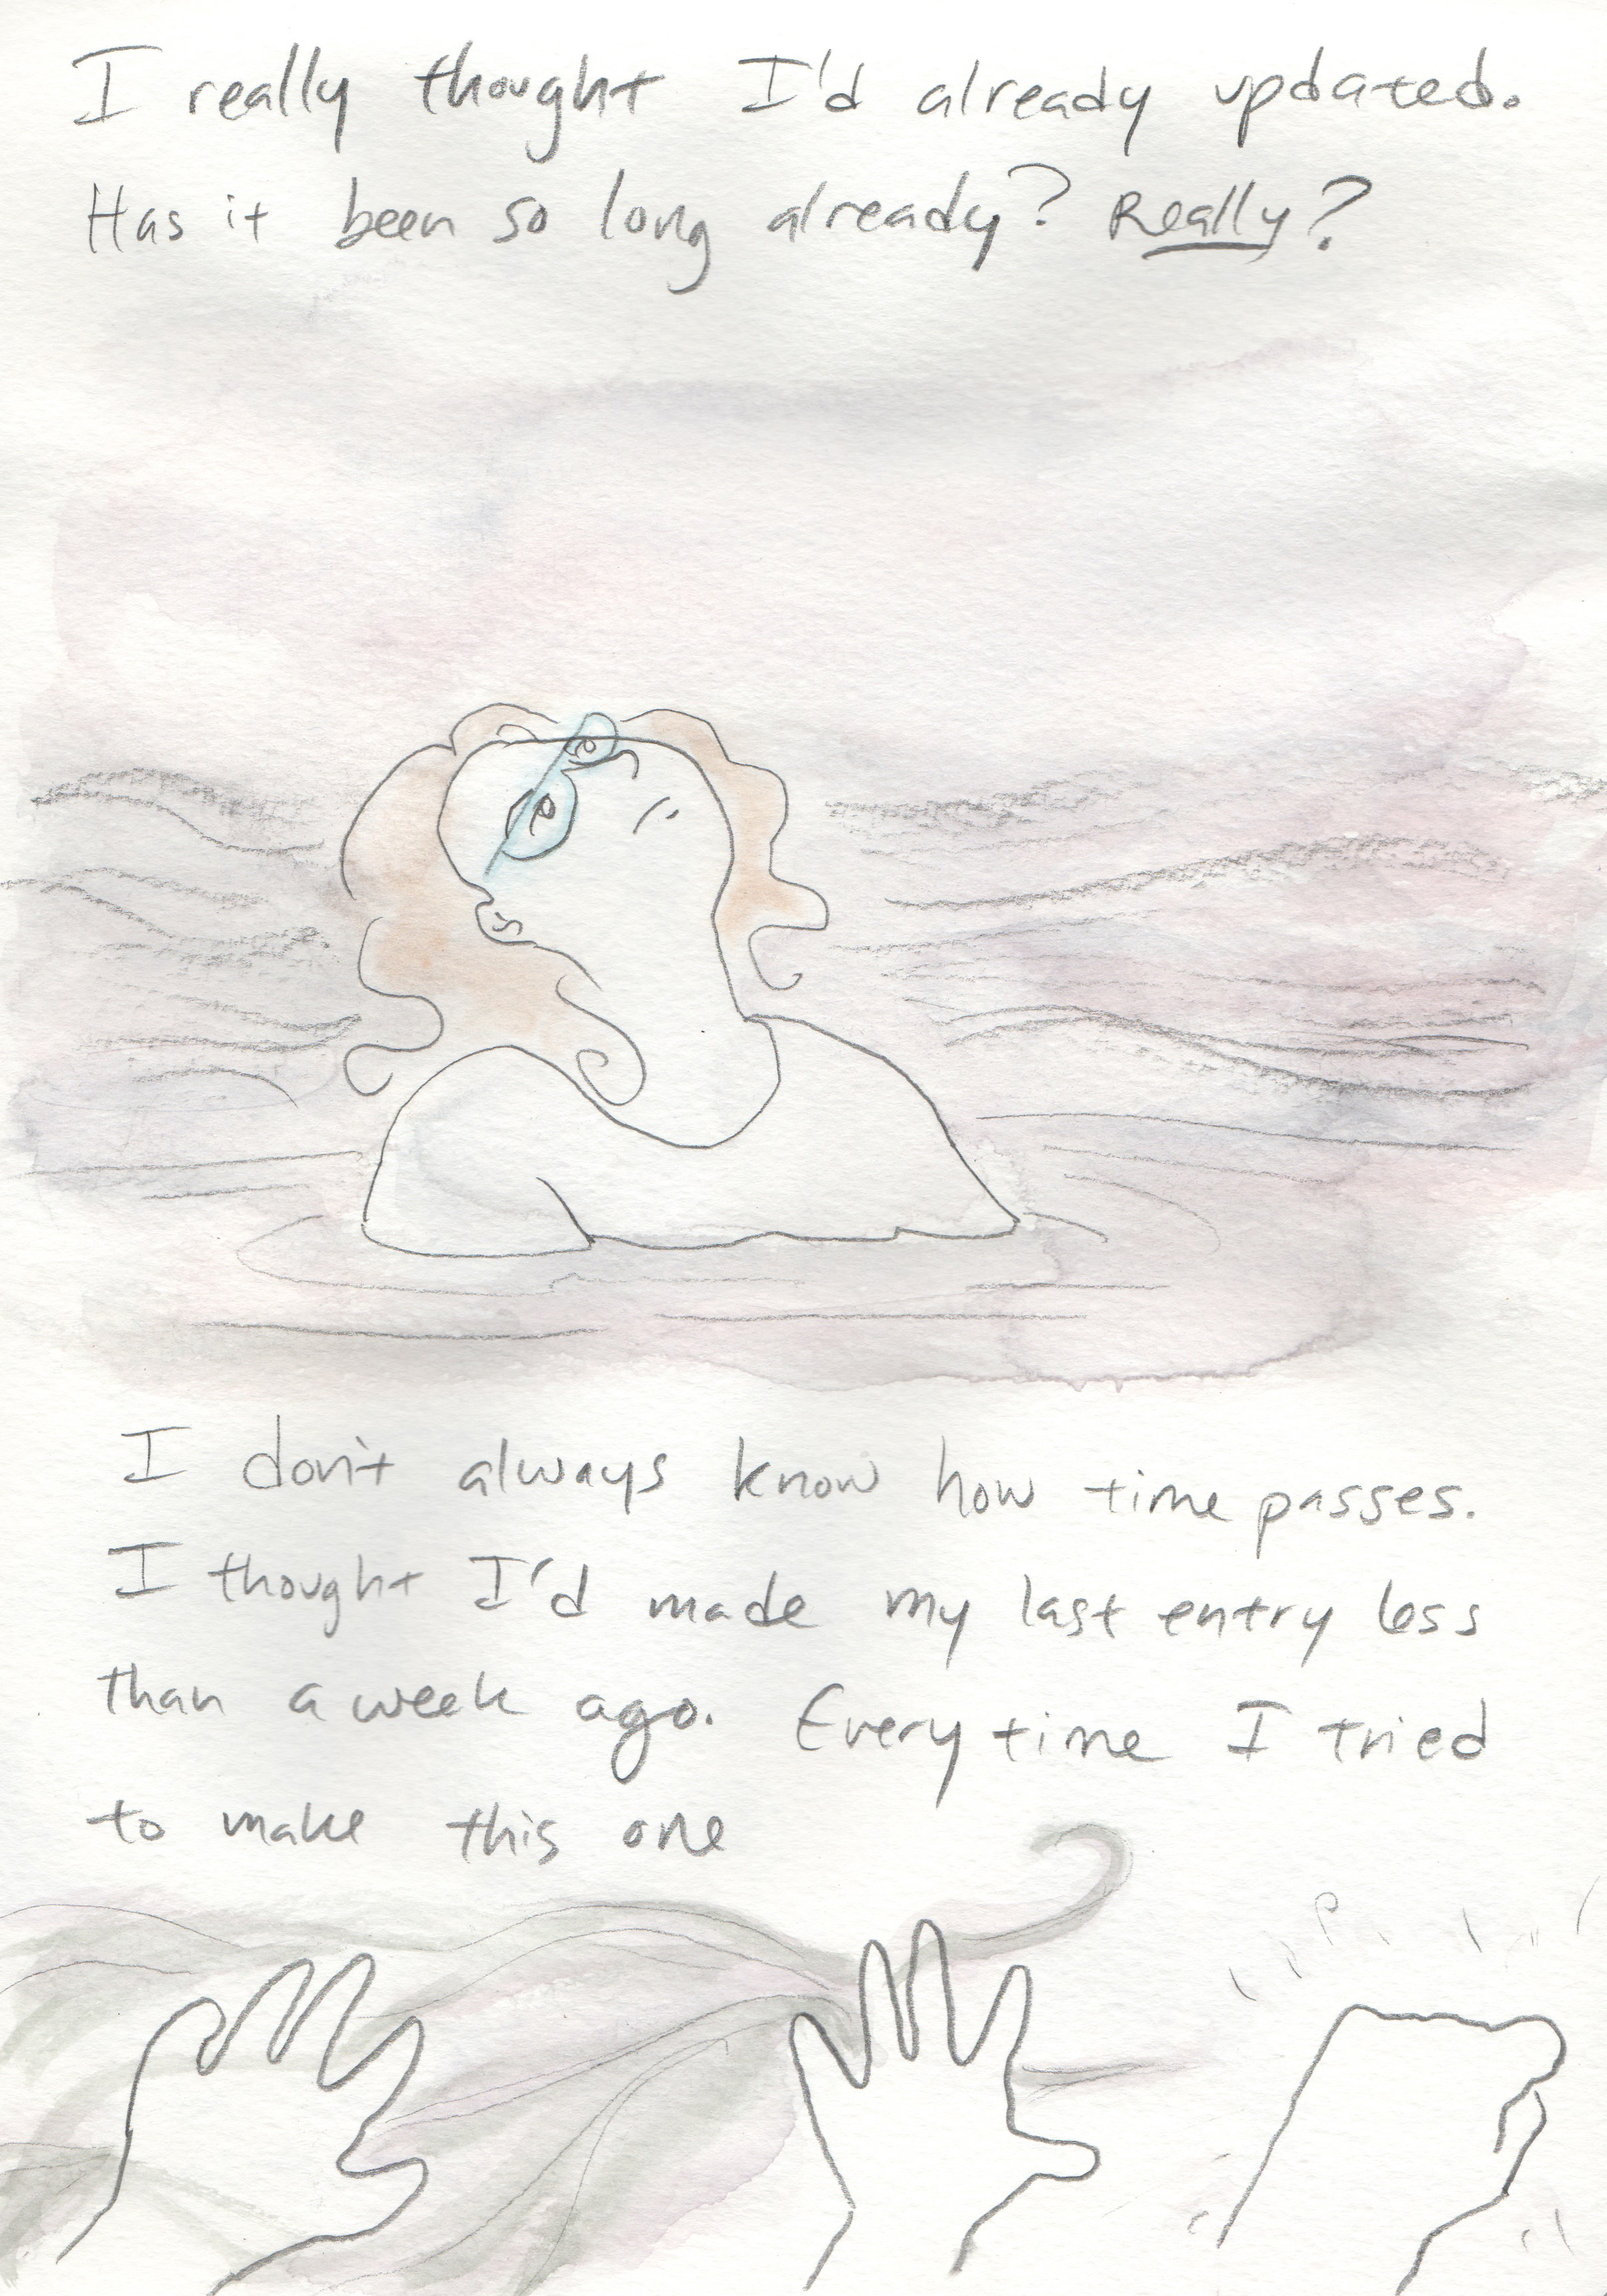 I really thought I'd already updated.
Has it been so long already? Really?
I don't always know how time passes.
I thought I'd made my last entry less
than a week ago. Every time I tried
to make this one